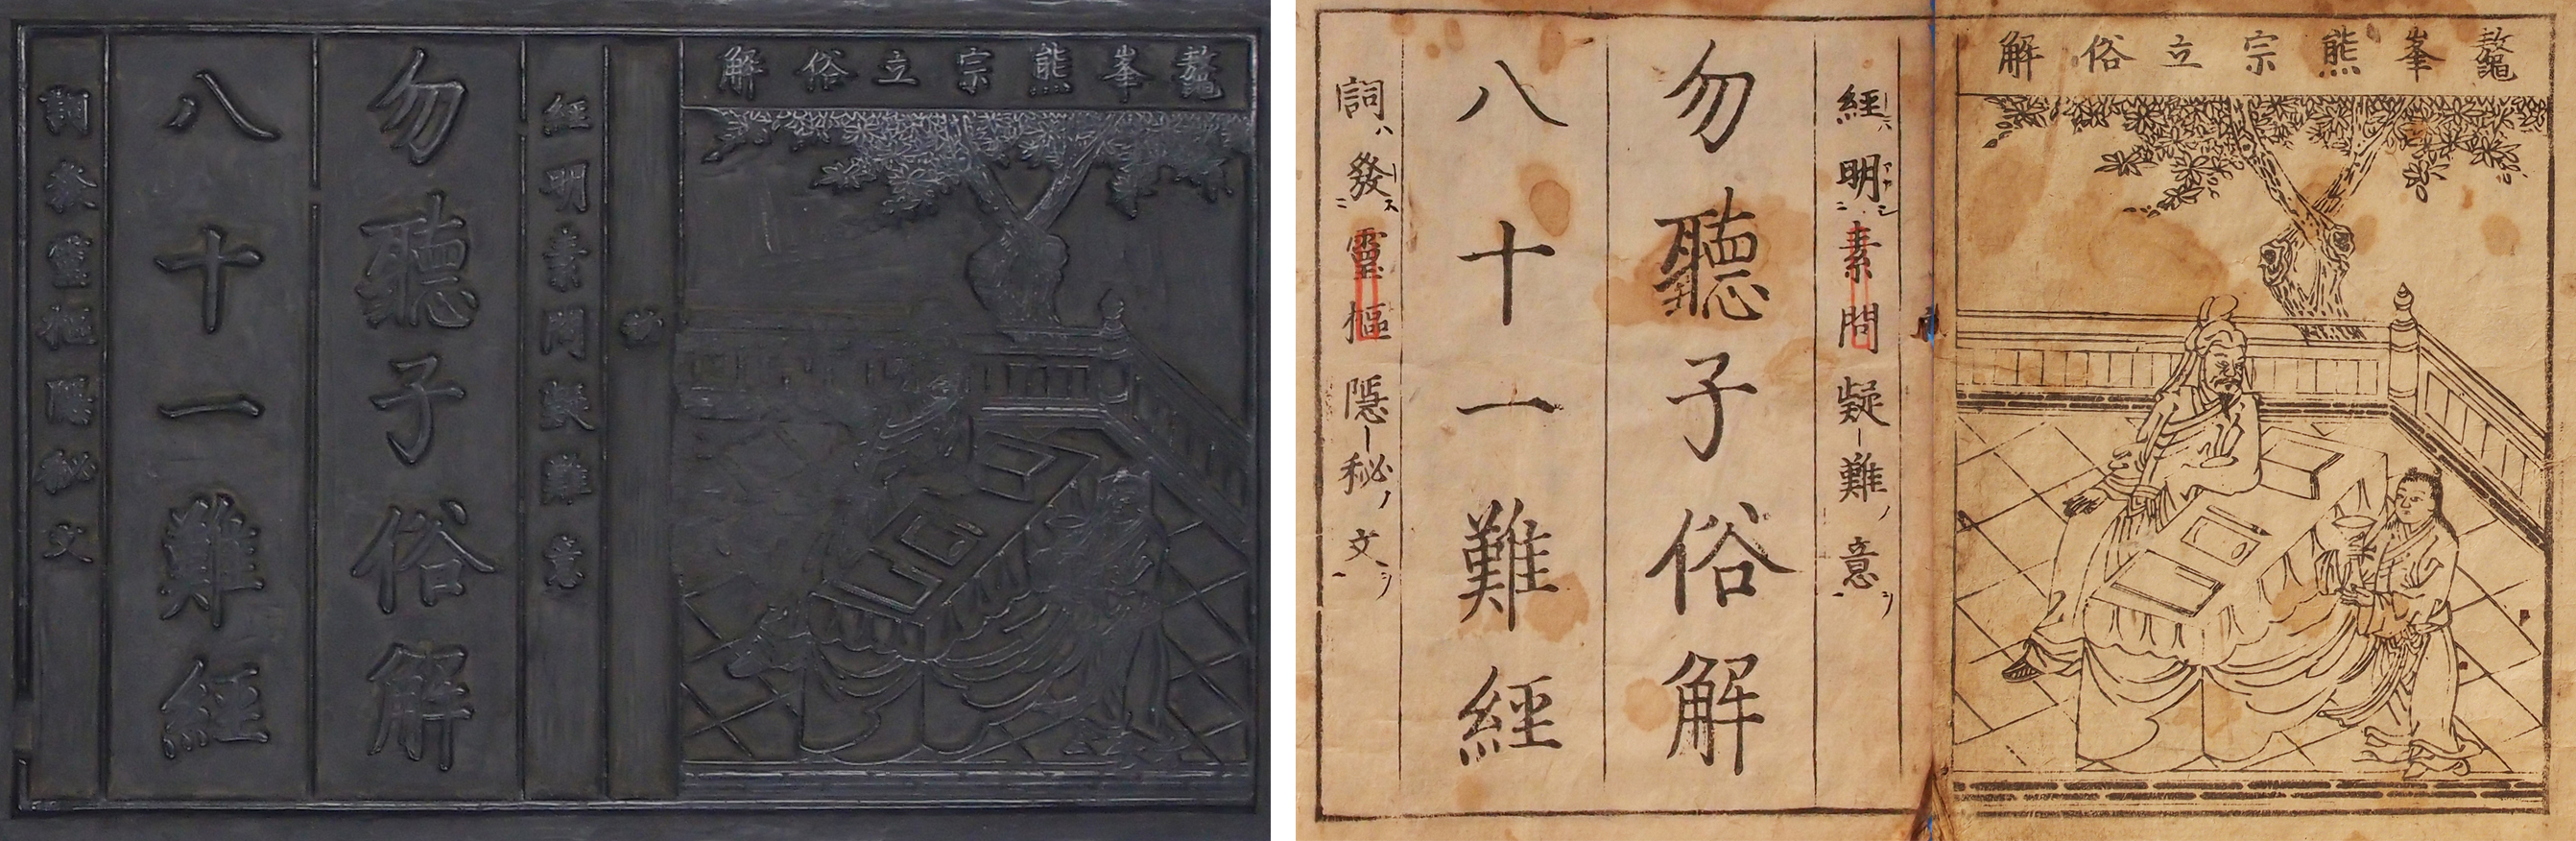 鼇峯熊宗立俗解
經明素問疑難意
勿聽子俗解
八十一難經
詞發靈樞隱秘文
鼇峯熊宗立俗解
經明素問疑難意
勿聽子俗解
八十一難經
詞發靈樞隱秘文